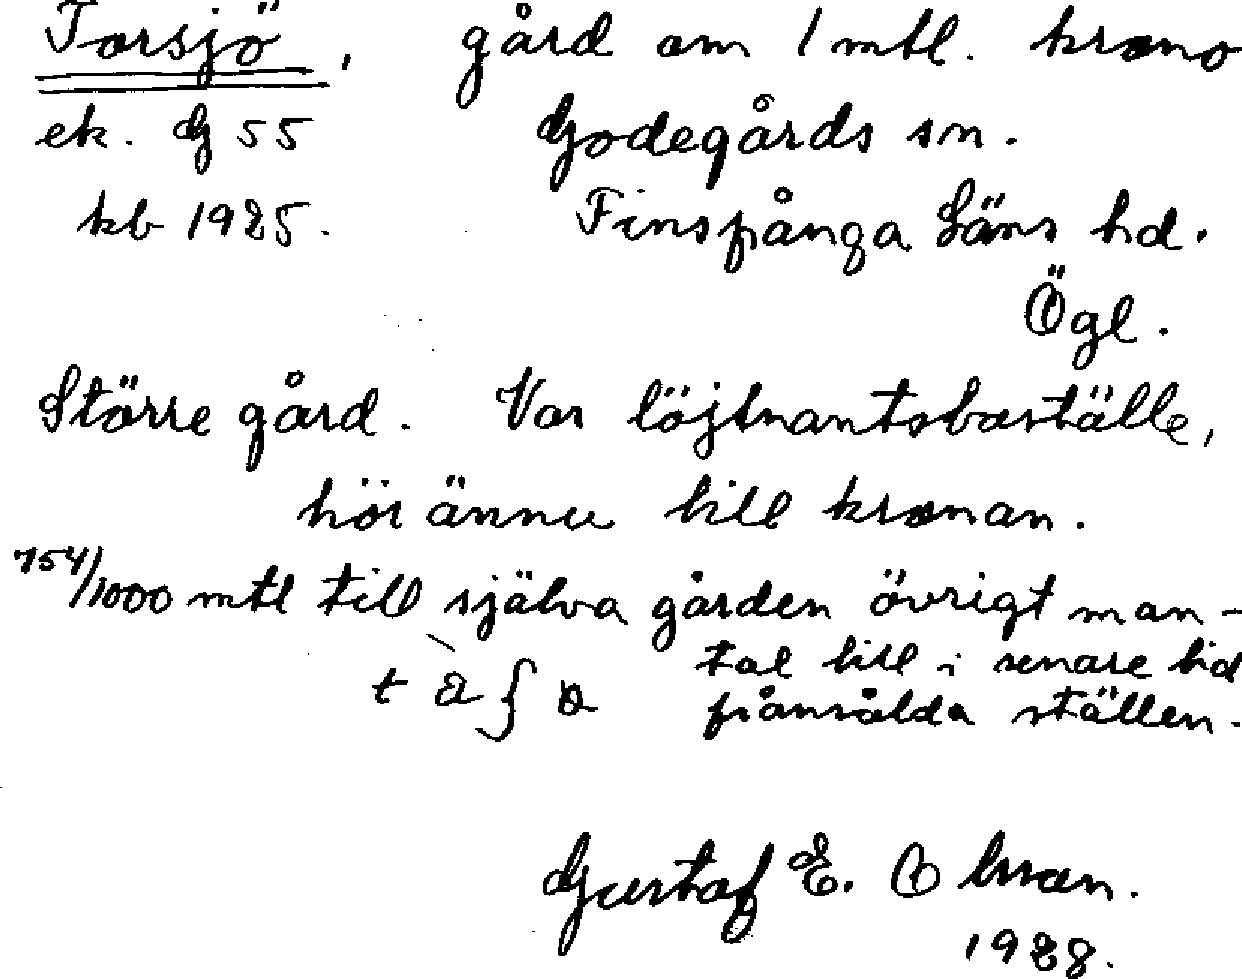 Torsjö, gård om 1 mtl. krono
ek. G 55 Godegårds sn.
kb 1925. Finspånga Läns hd.
Ögl.
Större gård. Var löjtnantsboställe,
hör ännu till kronan.
754/1000 mtl till själva gården övrigt man-
tal till i senare tid
frånsålda ställen.
Gustaf E. Olsson.
1928.